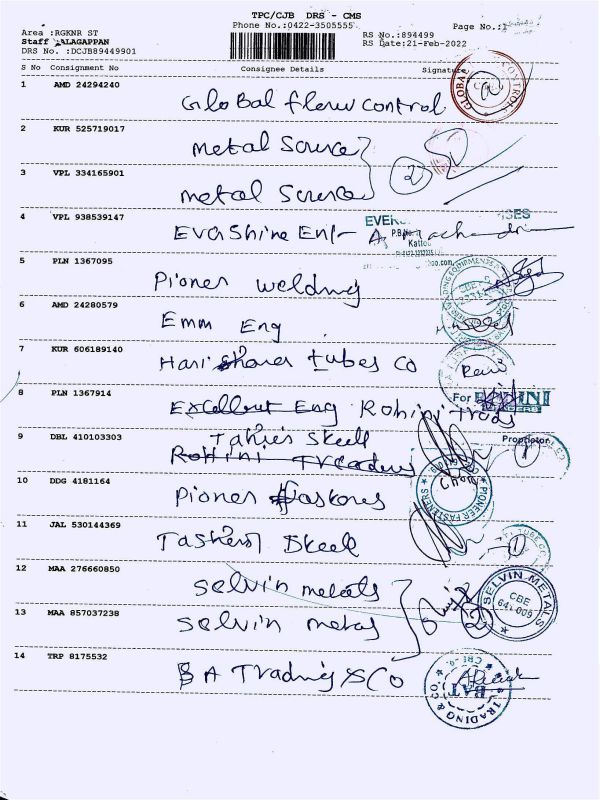 TPC/CJB DRS - CMS
Phone No.:0422-3505555
Page No.:1
Area :RGKNR ST
RS No.:894499
Staff :ALAGAPPAN
RS Date:21-Feb-2022
DRS No. :DCJB89449901
S No Consignment No Consignee Details Signature
1 AMD 24294240 Global flow control
2 KUR 525719017 metal Source
3 VPL 334165901 metal Source
2
4 VPL 938539147 Evarshine En/-
5 PLN 1367095 Pioner welding
6 AMD 24280579 Emm Eng
7 KUR 606189140 Hari tubes Co
8 PLN 1367914 Excellent Eng Rohini Trads
For ROHINI
Proprietor
9 DBL 410103303 Steell
Rohini Treaders
10 DDG 4181164 Pioner
PIONEER FASTENERS
11 JAL 530144369 Steell
12 MAA 276660850 Selvin metals
13 MAA 857037238 Selvin metas
SELVIN METALS
CBE
641 009
14 TRP 8175532 B A Trading & Co
BAT
TRADING & CO.